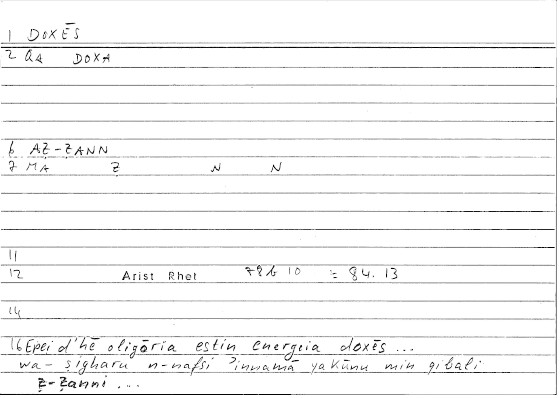 1 DOXĒS
2 QQ DOXA
6 AẒ-ẒANN
7 MA Ẓ N N
11
12 Arist Rhet 78b 10 = 84.13
14
16 Epei d'hē oligōria estin energeia doxēs ...
wa- ṣigharu n-nafsi ʾinnamā yakūnu min qibali
ẓ-ẓanni ...